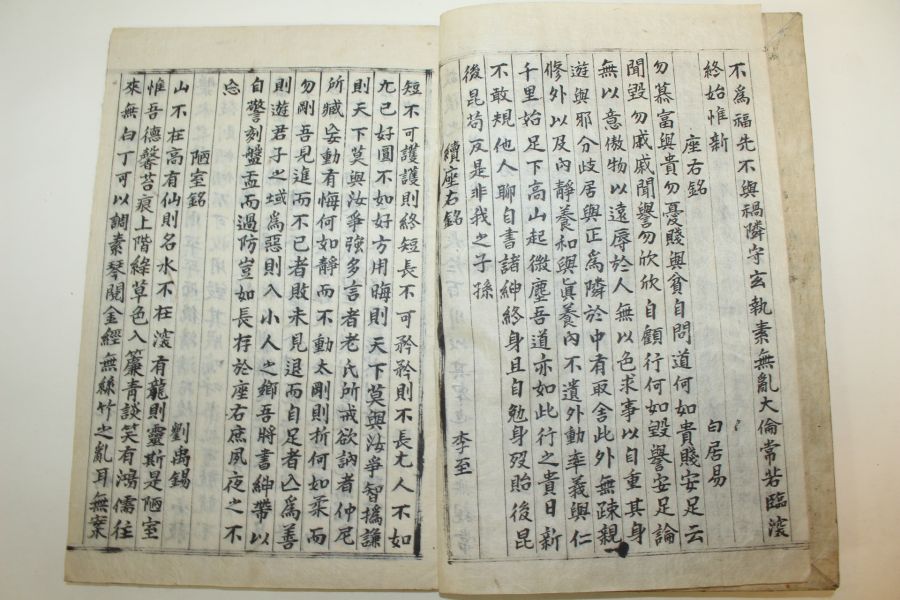 不爲福先不與禍隣守玄執素無亂大倫常若臨深
終始惟新
座右銘 白居易
勿慕富與貴勿憂賤與貧自問道何如貴賤安足云
聞毀勿戚戚聞譽勿欣欣自顧行何如毀譽安足論
無以意傲物以遠辱於人無以色求事以自重其身
遊與邪分歧居與正爲隣於中有取舍此外無疎親
修外以及內靜養和與眞養內不遺外動率義與仁
千里始足下高山起微塵吾道亦如此行之貴日新
不敢規他人聊自書諸紳終身且自勉身歿貽後昆
後昆苟反是非我之子孫
續座右銘 李至
短不可護護則終短長不可矜矜則不長尤人不如
尤已好圓不如好方用晦則天下莫與汝爭智撝謙
則天下莫與汝爭強多言者老氏所戒欲訥者仲尼
所臧妄動有悔何如靜而不動太剛則折何如柔而
勿剛吾見進而不已者敗未見退而自足者亾爲善
則遊君子之域爲惡則入小人之鄉吾將書紳帶以
自警刻盤盂而過防豈如長存於座右庶夙夜之不
忘
陋室銘 劉禹錫
山不在高有仙則名水不在深有龍則靈斯是陋室
惟吾德馨苔痕上階綠草色入簾靑談笑有鴻儒往
來無白丁可以調素琴閱金經無絲竹之亂耳無案